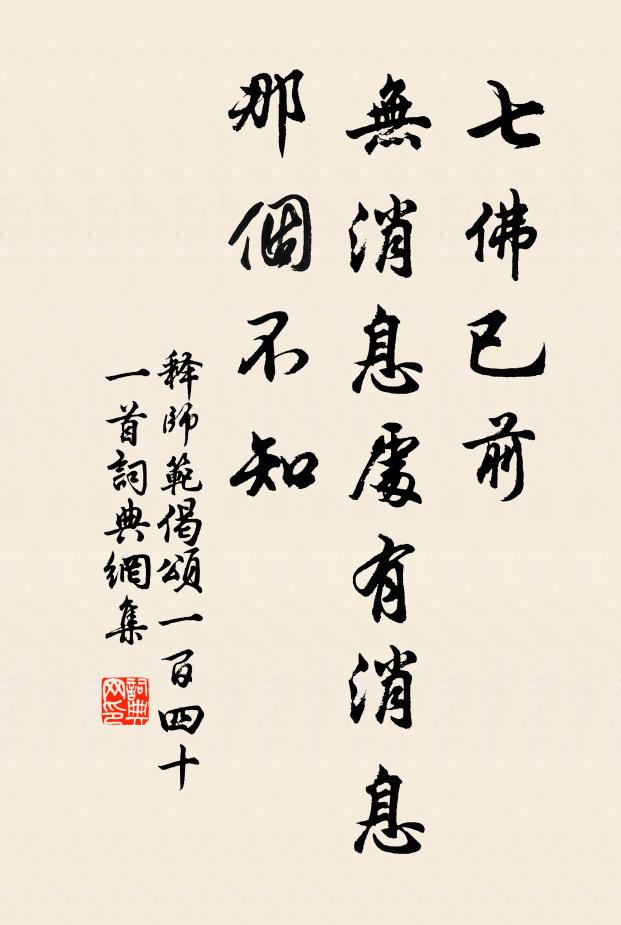 七佛已前
無消息處有消息
那個不知
释師範偈頌一百四十
一首詞典網集
詞典网印